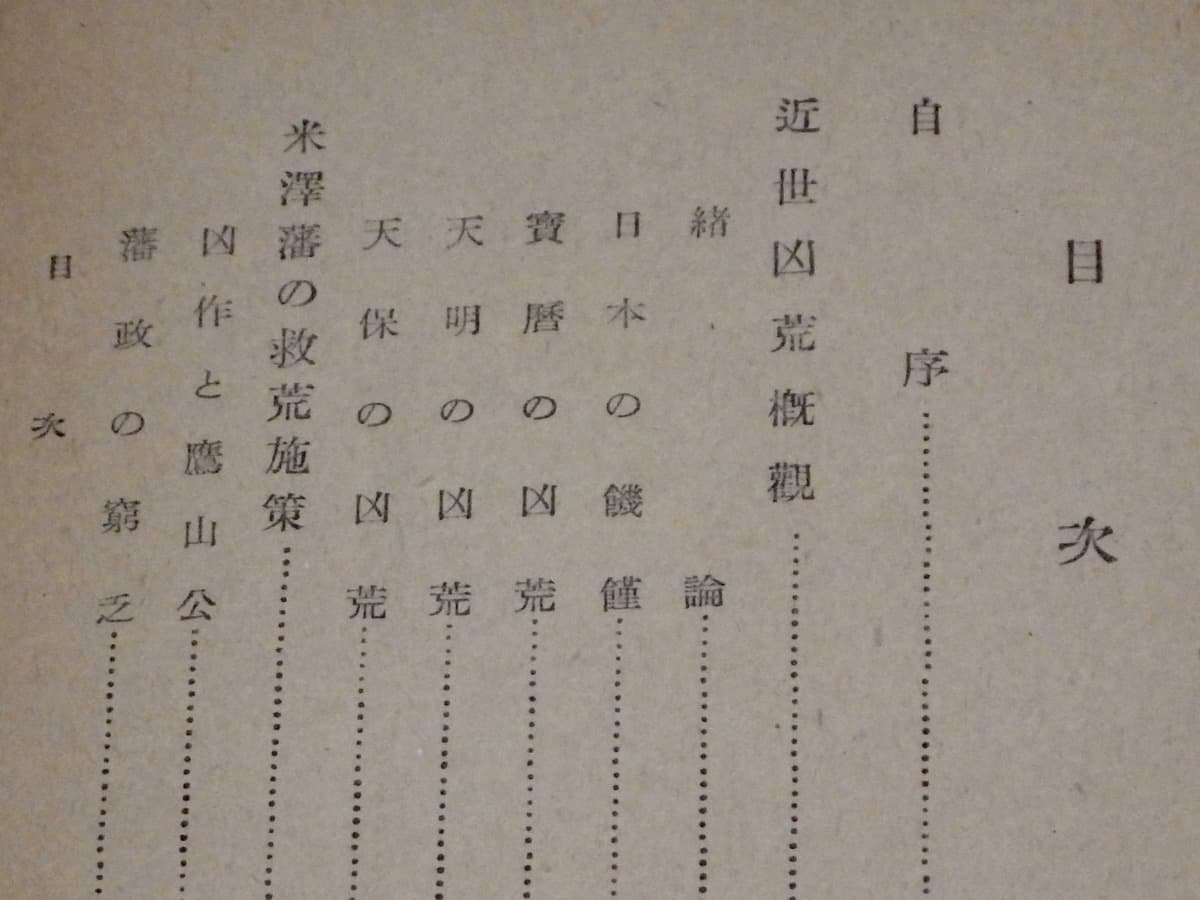 目次
自序
近世凶荒概觀
緒論
日本の饑饉
寶曆の凶荒
天明の凶荒
天保の凶荒
米澤藩の救荒施策
凶作と鷹山公
藩政の窮乏
目次